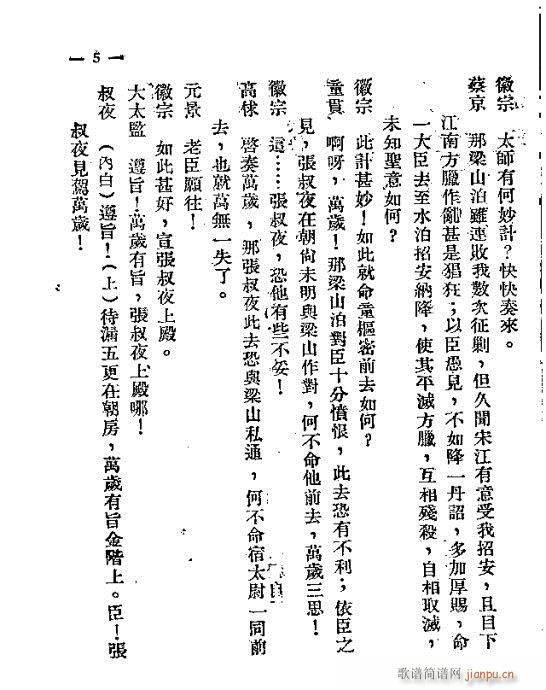 — 5 —
徽宗　太師有何妙計？快快奏來。
蔡京　那梁山泊雖連敗我數次征剿，但久聞宋江有意受我招安，且目下
江南方臘作亂甚是猖狂；以臣愚見，不如降一丹詔，多加厚賜，命
一大臣去至水泊招安納降，使其平滅方臘，互相殘殺，自相取滅，
未知聖意如何？
徽宗　此計甚妙！如此就命童樞密前去如何？
童貫　啊呀，萬歲！那梁山泊對臣十分憤恨，此去恐有不利；依臣之
見，張叔夜在朝尚未明與梁山作對，何不命他前去，萬歲三思！
徽宗　這……張叔夜，恐他有些不妥！
高俅　啓奏萬歲，那張叔夜此去恐與梁山私通，何不命宿太尉一同前
去，也就萬無一失了。
元景　老臣願往！
徽宗　如此甚好，宣張叔夜上殿。
大太監　遵旨！萬歲有旨，張叔夜上殿哪！
叔夜　（內白）遵旨！（上）待漏五更在朝房，萬歲有旨金階上。臣！張
叔夜見駕萬歲！
歌谱简谱网
jianpu.cn